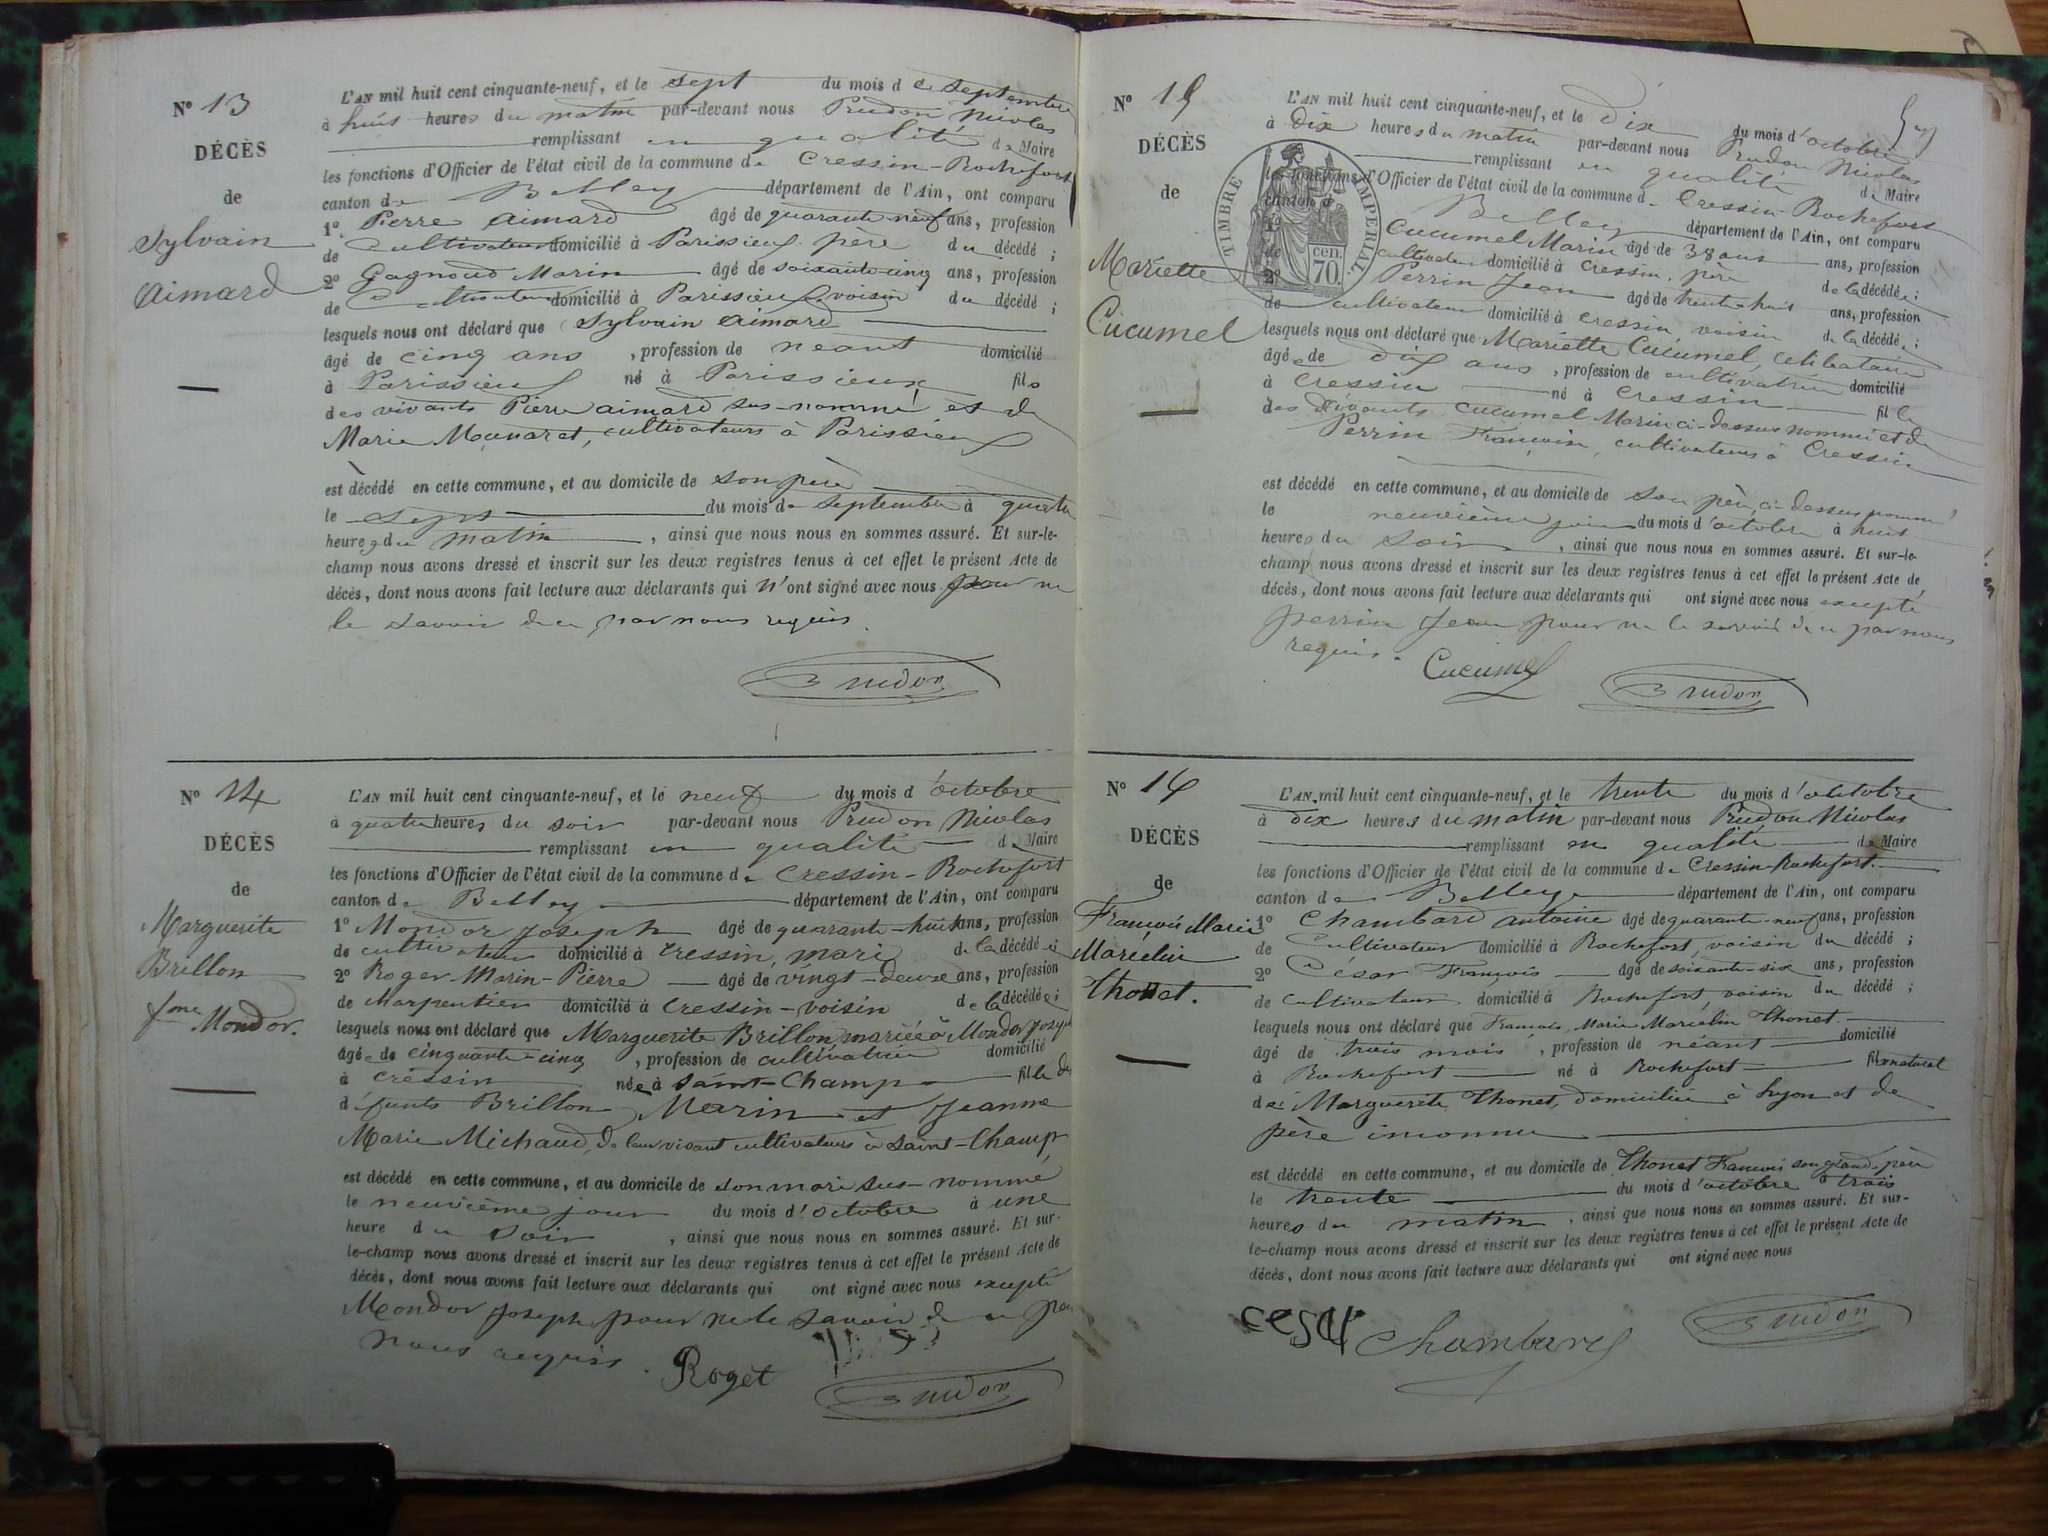 N° 13
DÉCÈS
de
Sylvain
Aimard
L'AN mil huit cent cinquante-neuf, et le sept du mois de septembre
à huit heures du matin par-devant nous Prudon Nicolas
remplissant en qualité de Maire
les fonctions d'Officier de l'état civil de la commune de Cressin-Rochefort
canton de Belley département de l'Ain, ont comparu
1° Pierre Aimard âgé de quarante neuf ans, profession
de cultivateur domicilié à Parissieux père du décédé ;
2° Gagnoud Marin âgé de soixante cinq ans, profession
de cultivateur domicilié à Parissieux voisin du décédé ;
lesquels nous ont déclaré que Sylvain Aimard
âgé de cinq ans , profession de néant domicilié
à Parissieux né à Parissieux fils
des vivants Pierre aimard sus-nommé et de
Marie cultivateurs à Parissieux
est décédé en cette commune, et au domicile de son père
le sept du mois de septembre à quatre
heures du matin , ainsi que nous nous en sommes assuré. Et sur-le-
champ nous avons dressé et inscrit sur les deux registres tenus à cet effet le présent Acte de
décès, dont nous avons fait lecture aux déclarants qui n'ont signé avec nous pour ne
le savoir de ce par nous requis.
Prudon
N° 14
DÉCÈS
de
Marguerite
Brillon
fme Mondor.
L'AN mil huit cent cinquante-neuf, et le neuf du mois d'octobre
à quatre heures du soir par-devant nous Prudon Nicolas
remplissant en qualité de Maire
les fonctions d'Officier de l'état civil de la commune de Cressin-Rochefort
canton de Belley département de l'Ain, ont comparu
1° Mondor Joseph âgé de quarante-huit ans, profession
de cultivateur domicilié à Cressin, mari de la décédée ;
2° Roger Marin-Pierre âgé de vingt-deux ans, profession
de charpentier domicilié à Cressin-voisin de la décédée ;
lesquels nous ont déclaré que Marguerite Brillon, mariée à Mondor Joseph
âgée de cinquante-cinq , profession de cultivatrice domicilié
à Cressin née à Saint-Champ fille de
défunts Brillon Marin et Jeanne
Marie Michaud, de leur vivant cultivateurs à Saint-Champ
est décédé en cette commune, et au domicile de son mari sus-nommé
le neuvième jour du mois d'octobre à une
heure du soir , ainsi que nous nous en sommes assuré. Et sur-
le-champ nous avons dressé et inscrit sur les deux registres tenus à cet effet le présent Acte de
décès, dont nous avons fait lecture aux déclarants qui ont signé avec nous excepté
Mondor Joseph pour ne le savoir de ce par
nous requis.
Roget
Prudon
N° 15
DÉCÈS
de
Mariette
Cucumel
TIMBRE IMPERIAL.
70 cen.
L'AN mil huit cent cinquante-neuf, et le dix du mois d'octobre
à dix heures du matin par-devant nous Prudon Nicolas
remplissant en qualité de Maire
les fonctions d'Officier de l'état civil de la commune de Cressin-Rochefort
canton de Belley département de l'Ain, ont comparu
1° Cucumel Marin âgé de 38 ans ans, profession
de cultivateur domicilié à Cressin, père de la décédée ;
2° Perrin Jean âgé de trente-huit ans, profession
de cultivateur domicilié à Cressin voisin de la décédée ;
lesquels nous ont déclaré que Mariette Cucumel, célibataire
âgée de dix ans , profession de cultivatrice domicilié
à Cressin né à Cressin fille
des vivants Cucumel Marin ci-dessus nommé et de
Perrin Françoise, cultivateurs à Cressin
est décédé en cette commune, et au domicile de son père, ci-dessus nommé
le neuvième jour du mois d'octobre à huit
heures du soir , ainsi que nous nous en sommes assuré. Et sur-le-
champ nous avons dressé et inscrit sur les deux registres tenus à cet effet le présent Acte de
décès, dont nous avons fait lecture aux déclarants qui ont signé avec nous excepté
Perrin Jean pour ne le savoir de ce par nous
requis.
Cucumel
Prudon
N° 16
DÉCÈS
de
François Marie
Marcelin
Thonet.
L'AN mil huit cent cinquante-neuf, et le trente du mois d'octobre
à dix heures du matin par-devant nous Prudon Nicolas
remplissant en qualité de Maire
les fonctions d'Officier de l'état civil de la commune de Cressin-Rochefort.
canton de Belley département de l'Ain, ont comparu
1° Chambard antoine âgé de quarante-neuf ans, profession
de cultivateur domicilié à Rochefort, voisin du décédé ;
2° César François âgé de soixante-six ans, profession
de cultivateur domicilié à Rochefort, voisin du décédé ;
lesquels nous ont déclaré que François Marie Marcelin Thonet
âgé de trois mois , profession de néant domicilié
à Rochefort né à Rochefort fils naturel
de Marguerite Thonet, domiciliée à Lyon et de
père inconnu
est décédé en cette commune, et au domicile de Thonet François son grand-père
le trente du mois d'octobre à trois
heures du matin , ainsi que nous nous en sommes assuré. Et sur-
le-champ nous avons dressé et inscrit sur les deux registres tenus à cet effet le présent Acte de
décès, dont nous avons fait lecture aux déclarants qui ont signé avec nous
Chambard
Prudon